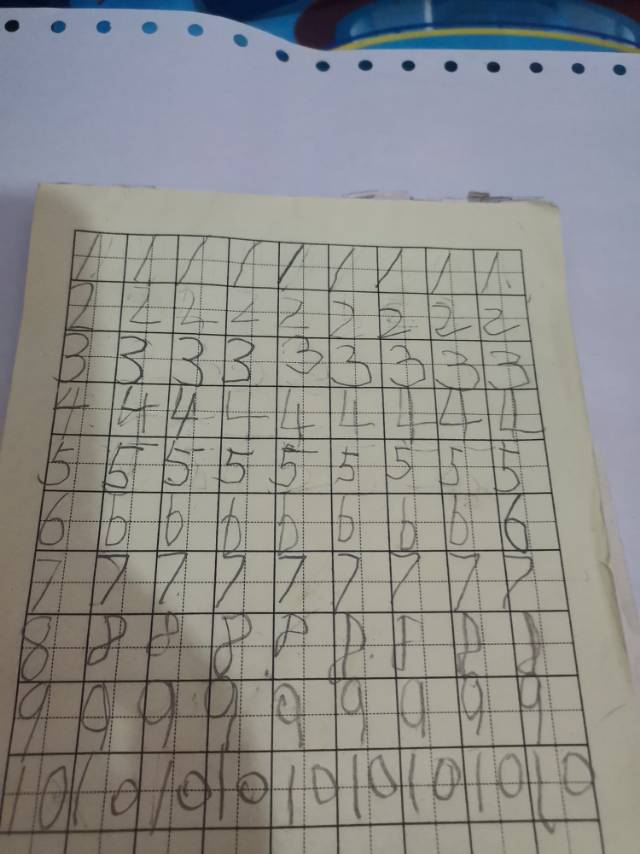 1 1 1 1 1 1 1 1 1
2 2 2 2 2 2 2 2 2
3 3 3 3 3 3 3 3 3
4 4 4 4 4 4 4 4 4
5 5 5 5 5 5 5 5 5
6 6 6 6 6 6 6 6 6
7 7 7 7 7 7 7 7 7
8 8 8 8 8 8 8 8 8
9 9 9 9 9 9 9 9 9
10 10 10 10 10 10 10 10 10